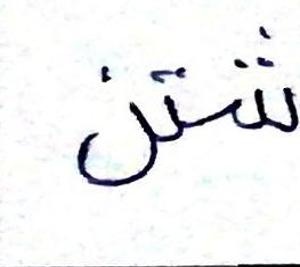 شتن